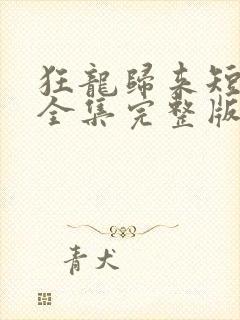 狂龍歸來短
全集完整版
青犬